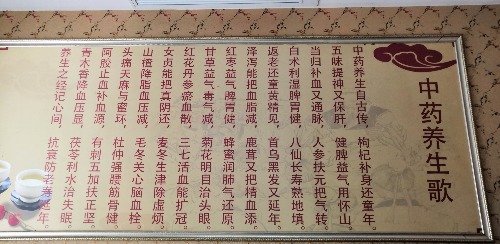 中药养生歌
中药养生自古传，枸杞补身还童年。
五味提神又保肝，健脾益气用怀山。
当归补血又通脉，人参扶元把气转。
白术利湿脾胃健，八仙长寿熟地填。
返老还童黄精见，首乌黑发又延年。
泽泻能把血脂减，鹿茸又把精血添。
红枣益气脾胃健，蜂蜜润肺气还原。
甘草益气毒气减，菊花明目治头眼。
红花丹参瘀血散，三七活血能扩冠。
女贞能把真阴还，麦冬生津除虚烦。
山楂降脂血压减，毛冬关心脑血栓。
头痛天麻与蜜环，杜仲强腰筋骨健。
阿胶止血补血源，有刺五加扶正坚。
青木香降血压显，茯苓利水治失眠。
养生之经记心间，抗衰防老寿延年。